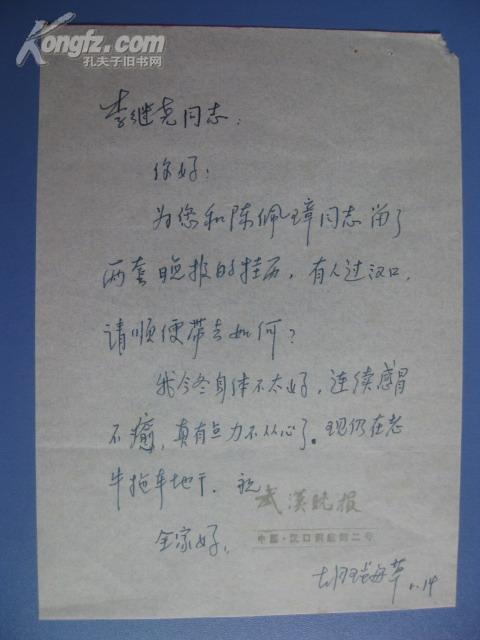 Kongfz.com
孔夫子旧书网
李继尧同志:
你好:
为您和陈佩璋同志留了
两套晚报的挂历,有人过汉口,
请顺便带去如何?
我今冬身体不太好,连续感冒
不癒,真有点力不从心了。现仍在老
牛拖车地干。祝
武漢晚报
全家好。
中国·汉口 二号
胡 1.14